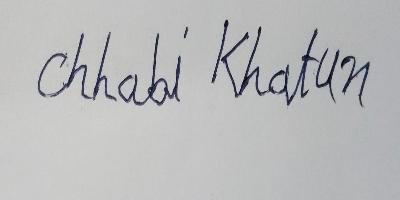 Chhabi Khatun